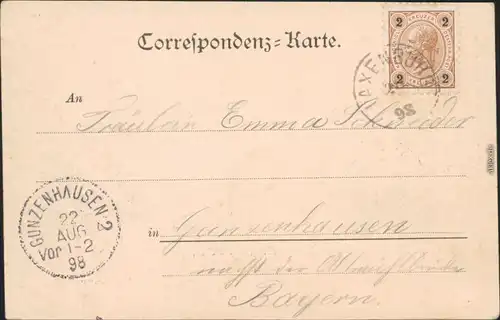 Correspondenz=Karte.
KREUZER
2 2
2 2
AXENB
98
An
Fräulein Emma Schneider
GUNZENHAUSEN 2
22
AUG
Vor 1-2
98
in Gunzenhausen
nächst der Altmühlbrücke
Bayern.